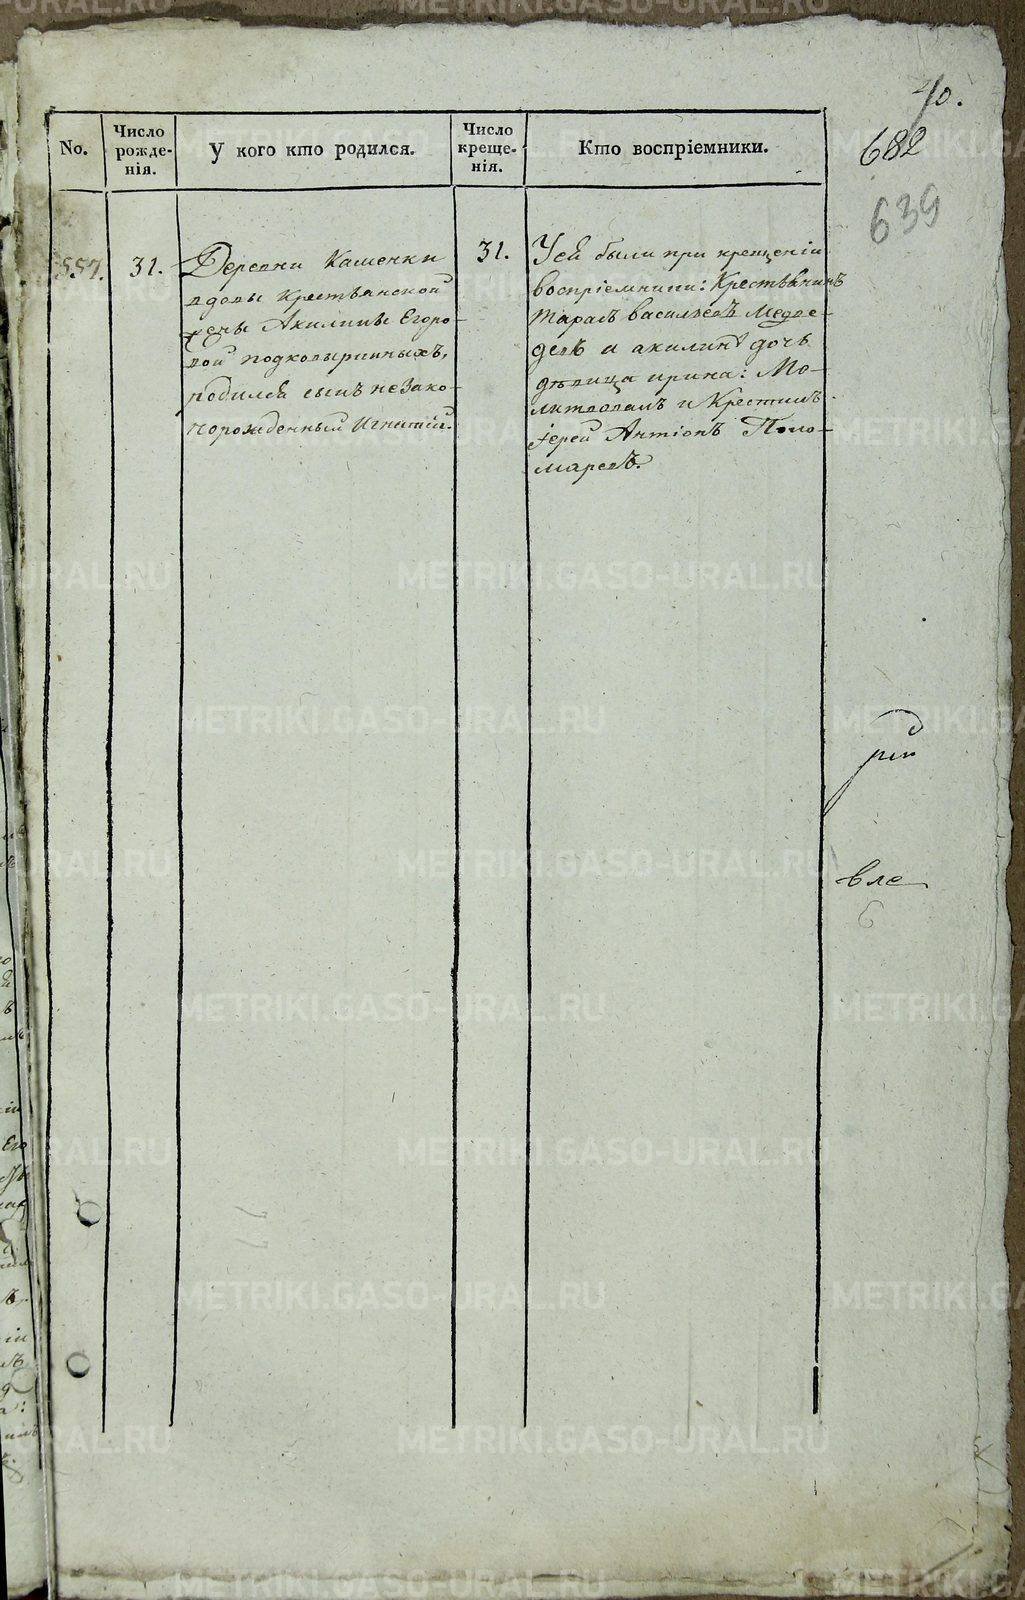 40.
682
639
No.
Число рожде-нія.
У кого кто родился.
Число креще-нія.
Кто воспріемники.
557.
31.
Деревни Каменки
вдовы крестьянской
жены Акилины Егоро-
вой подковыриныхъ,
родился сынъ незако-
норожденный Игнатій.
31.
Усей были при крещеніи
воспріемники: Крестьянинъ
Тарасъ васильевъ Медве-
девъ и акилин дочь
дѣвица ирина: Мо-
литвовалъ и Крестилъ
іерей Антіонъ Поно-
маревъ.
вле
METRIKI.GASO-URAL.RU